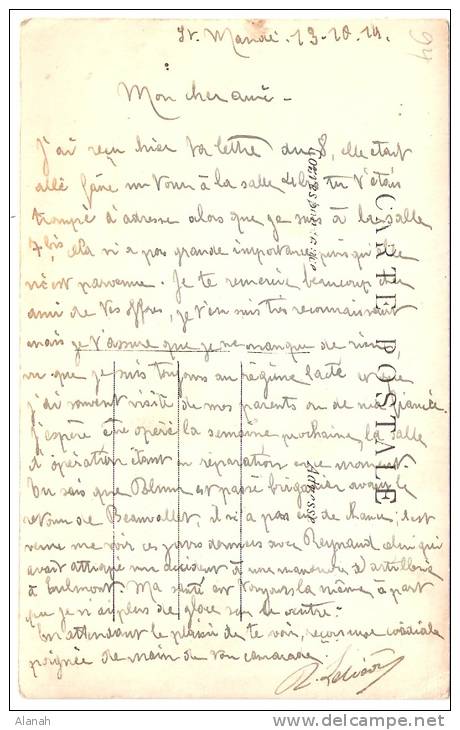 St. Mandé. 13-10-19.
94
Mon cher ami -
J'ai reçu hier ta lettre du 8, elle était
allé faire un tour à la salle tu t'étais
trompé d'adresse alors que je suis à la salle
7 bis, cela n'a pas grande importance puisqu'elle
m'est parvenue. Je te remercie beaucoup cher
ami de tes offres, je t'en suis très reconnaissant
mais je t'assure que je ne manque de rien,
vu que je suis toujours au régime lacté et que
j'ai souvent visite de mes parents ou de ma fiancée.
J'espère être opéré la semaine prochaine, la salle
d'opération étant en réparation en ce moment.
Tu sais que est passé brigadier avant le
retour de Beauvallet, il n'a pas eu de chance; il est
venu me voir ces jours derniers avec Reynaud celui qui
avait attrapé un accident à une manœuvre d'artillerie
à Ma santé est toujours la même à part
que je n'ai plus de glace sur le ventre.
En attendant le plaisir de te voir, reçois une cordiale
poignée de main de ton camarade.
CARTE POSTALE
Correspondance
Adresse
Alanah
www.delcampe.net